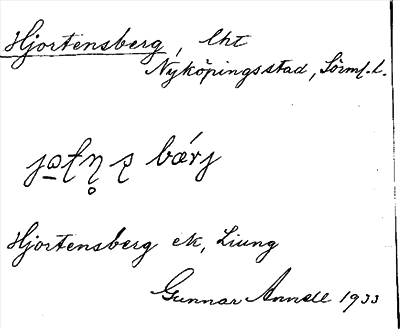 Hjortensberg, lht
Nyköpingsstad, Sörml. l.
bǽrj
Hjortensberg ek, Liung
Gunnar Annell 1933